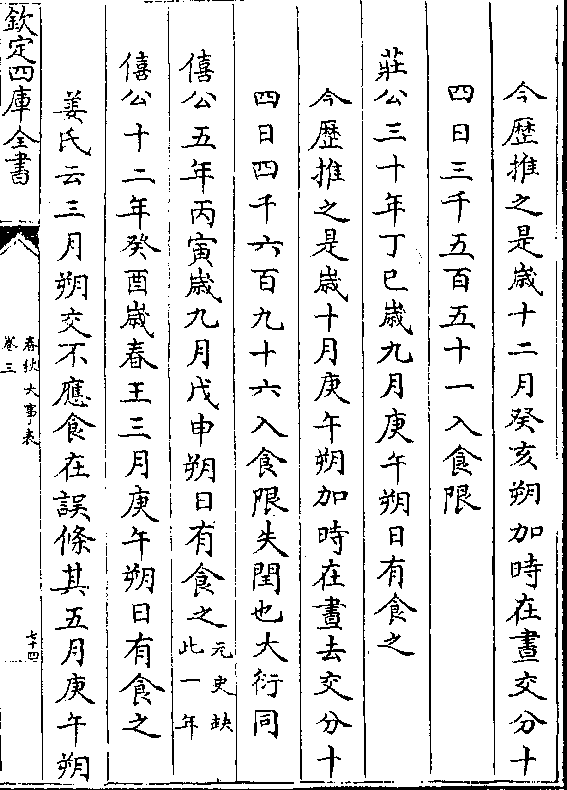 今歴推之是歲十二月癸亥朔加時在晝交分十
四日三千五百五十一入食限
莊公三十年丁巳歲九月庚午朔日有食之
今歴推之是歲十月庚午朔加時在晝去交分十
四日四千六百九十六入食限失閏也大衍同
僖公五年丙寅歲九月戊申朔日有食之元史缺此一年
僖公十二年癸酉歲春王三月庚午朔日有食之
姜氏云三月朔交不應食在誤條其五月庚午朔
欽定四庫全書
春秋大事表
卷三
七十四